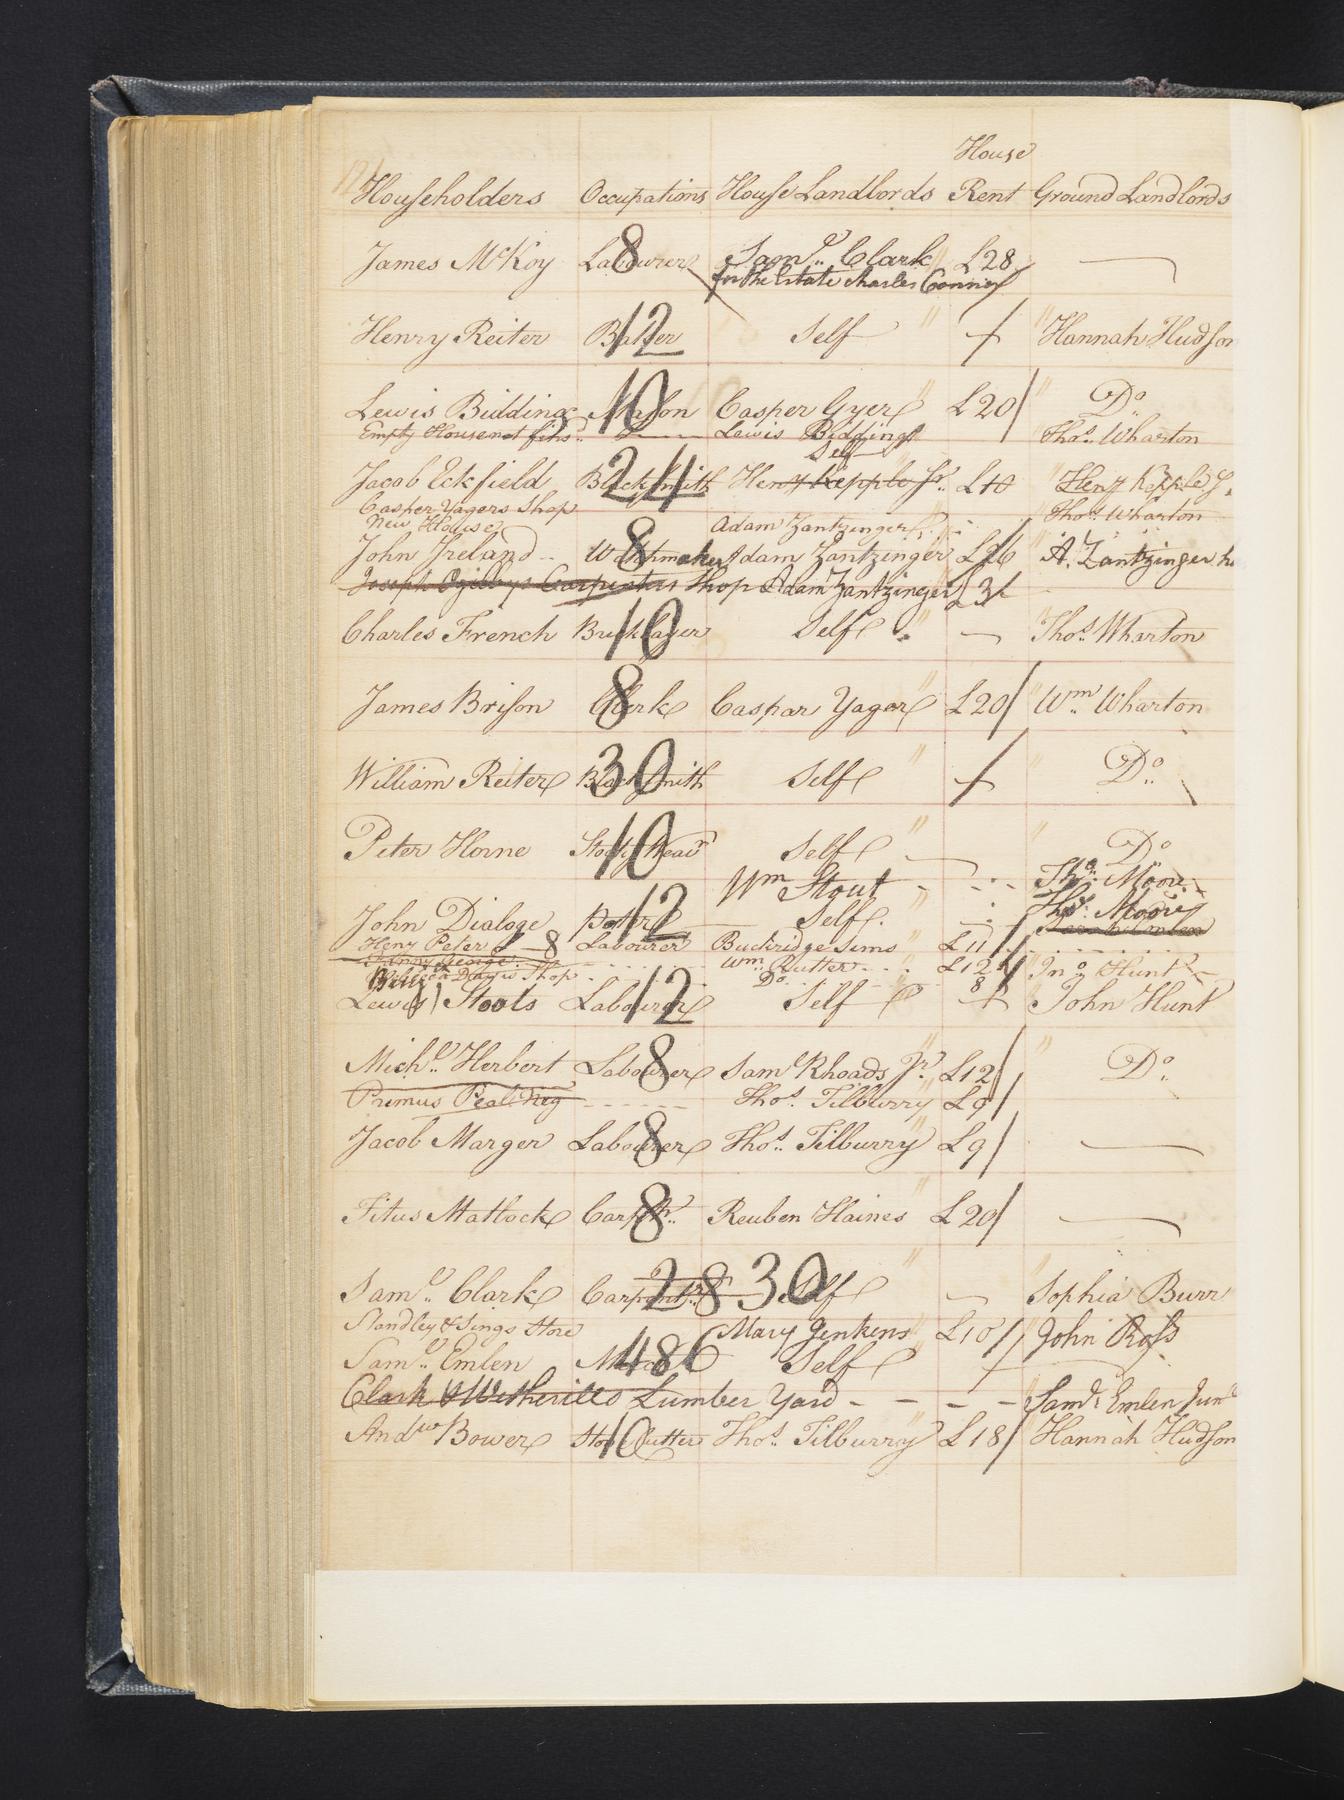 House
Householders Occupations House Landlords Rent Ground Landlords
James McKoy Labourer 8 Saml. Clark £28 —
for the Estate Charles Connor
Henry Reiter 12 Self + Hannah Hudson
Lewis Bidding Mason 10 Casper Gyer £20 Do
Empty House not finsd. Lewis Bidding Thos. Wharton
Self
Jacob Eckfield Blacksmith 24 Heny Kepple Jr. £10 Heny Kepple J
Casper Yagers Shop Thos. Wharton
New House Adam Zantzinger
John Ireland Watchmaker 8 Adam Zantzinger £26 A. Zantzinger
Joseph Ogilbys Carpenters Shop Adam Zantzinger £3
Charles French Bricklayer 10 Self — Thos. Wharton
James Brison Clerk 8 Caspar Yager £20 Wm Wharton
William Reiter Blacksmith 30 Self + Do
Peter Horne 10 Self — Do
Wm Stout Thos. Moore
John Dialoge Potter 12 Self Thos. Moore
Heny Peter 8 Labourer Buckridge Sims £11 Sarah Emlen
George Wm. Rutter £12 Jno Hunt
Shop Do 8
Lewis Stoots Labourer 12 Self + John Hunt
Michl. Herbert Labourer 8 Saml Rhoads Jr. £12 Do
Primus Peal. Neg Thos. Tilburry £9
Jacob Marger Labourer 8 Thos. Tilburry £9 —
Titus Matlock Carptr. 8 Reuben Haines £20 —
Saml. Clark Carpenter 28 30 Self — Sophia Burr
Standley & Sings Store Mary Jenkens £10 John Ross
Saml. Emlen 486 Self
Clark & Wetherills Lumber Yard - - - - Saml Emlen Junr
Andw Bower Stone Cutter 10 Thos. Tilburry £18 Hannah Hudson